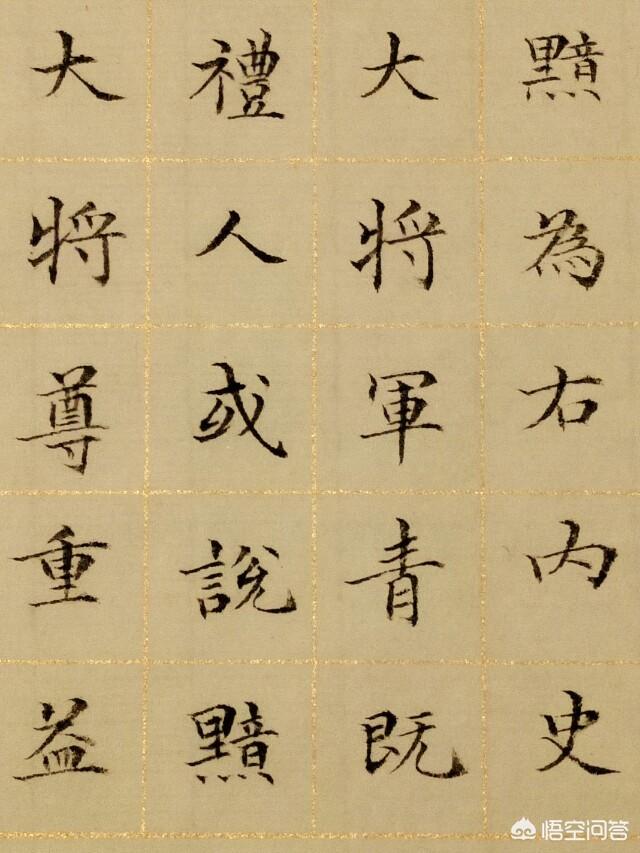 黯為右内史
大將軍青既
禮人或說黯
大將尊重益
悟空问答